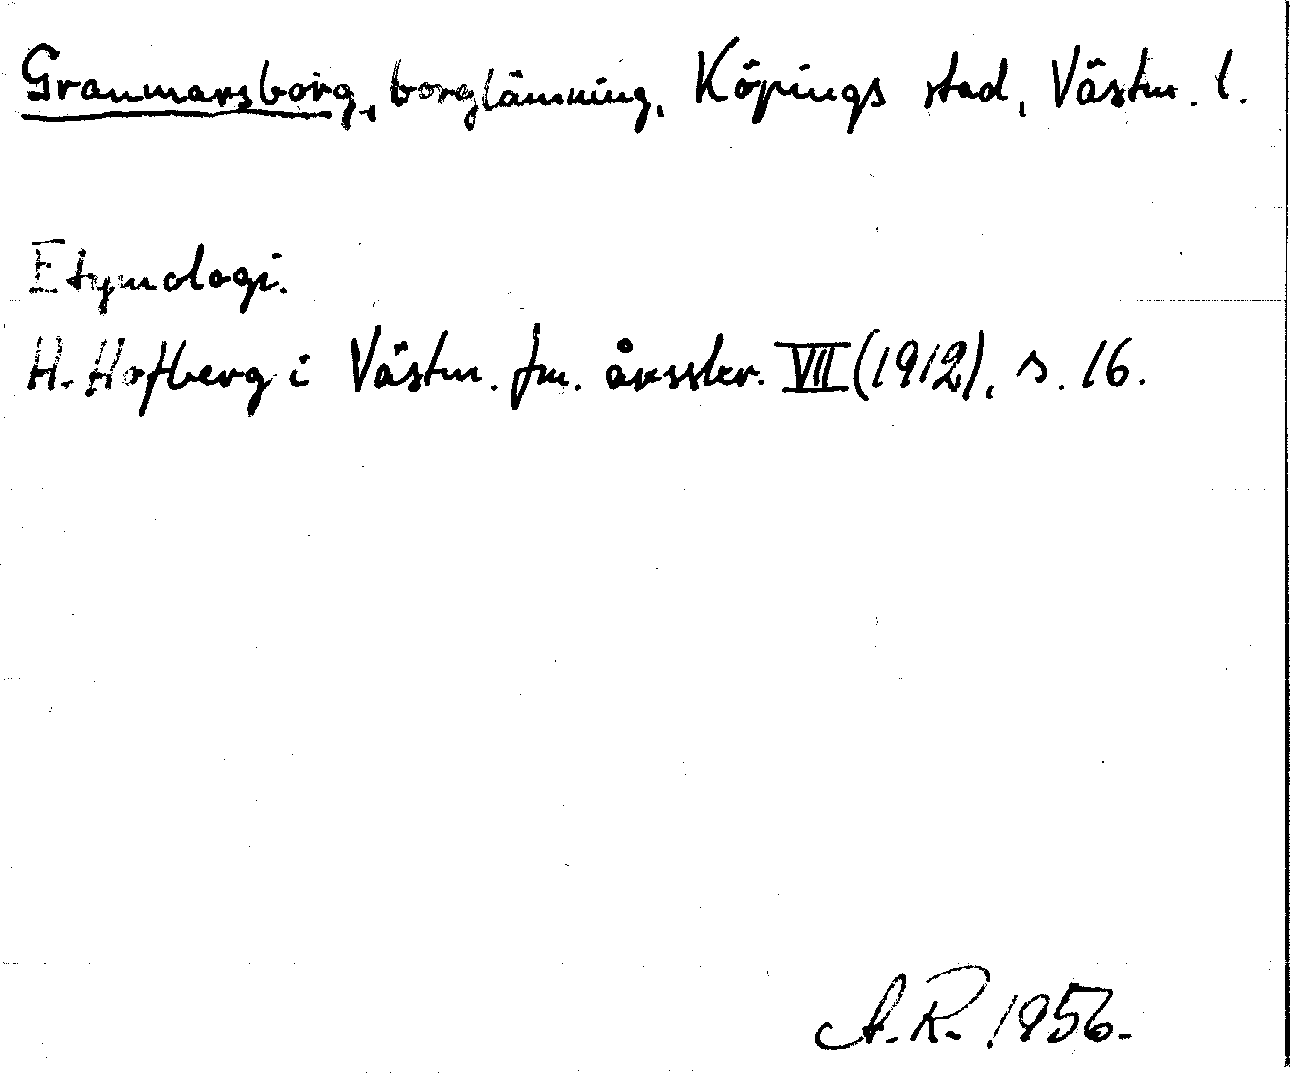 Granmarsborg, borglämning, Köpings stad, Västm. l.
Etymologi.
H. Hofberg i Västm. fm. årsskr. VII (1912), s. 16.
A. R. 1956.